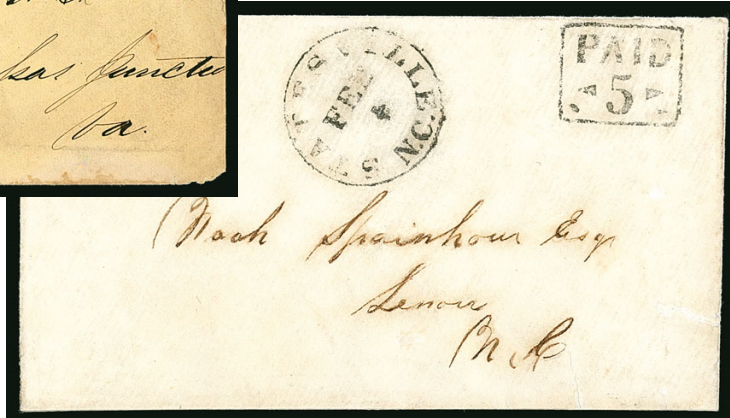 Junctio
Va.
STATESVILLE N.C.
FEB
4
PAID
5
Noah Spainhour Esqr
Lenoir
N. C